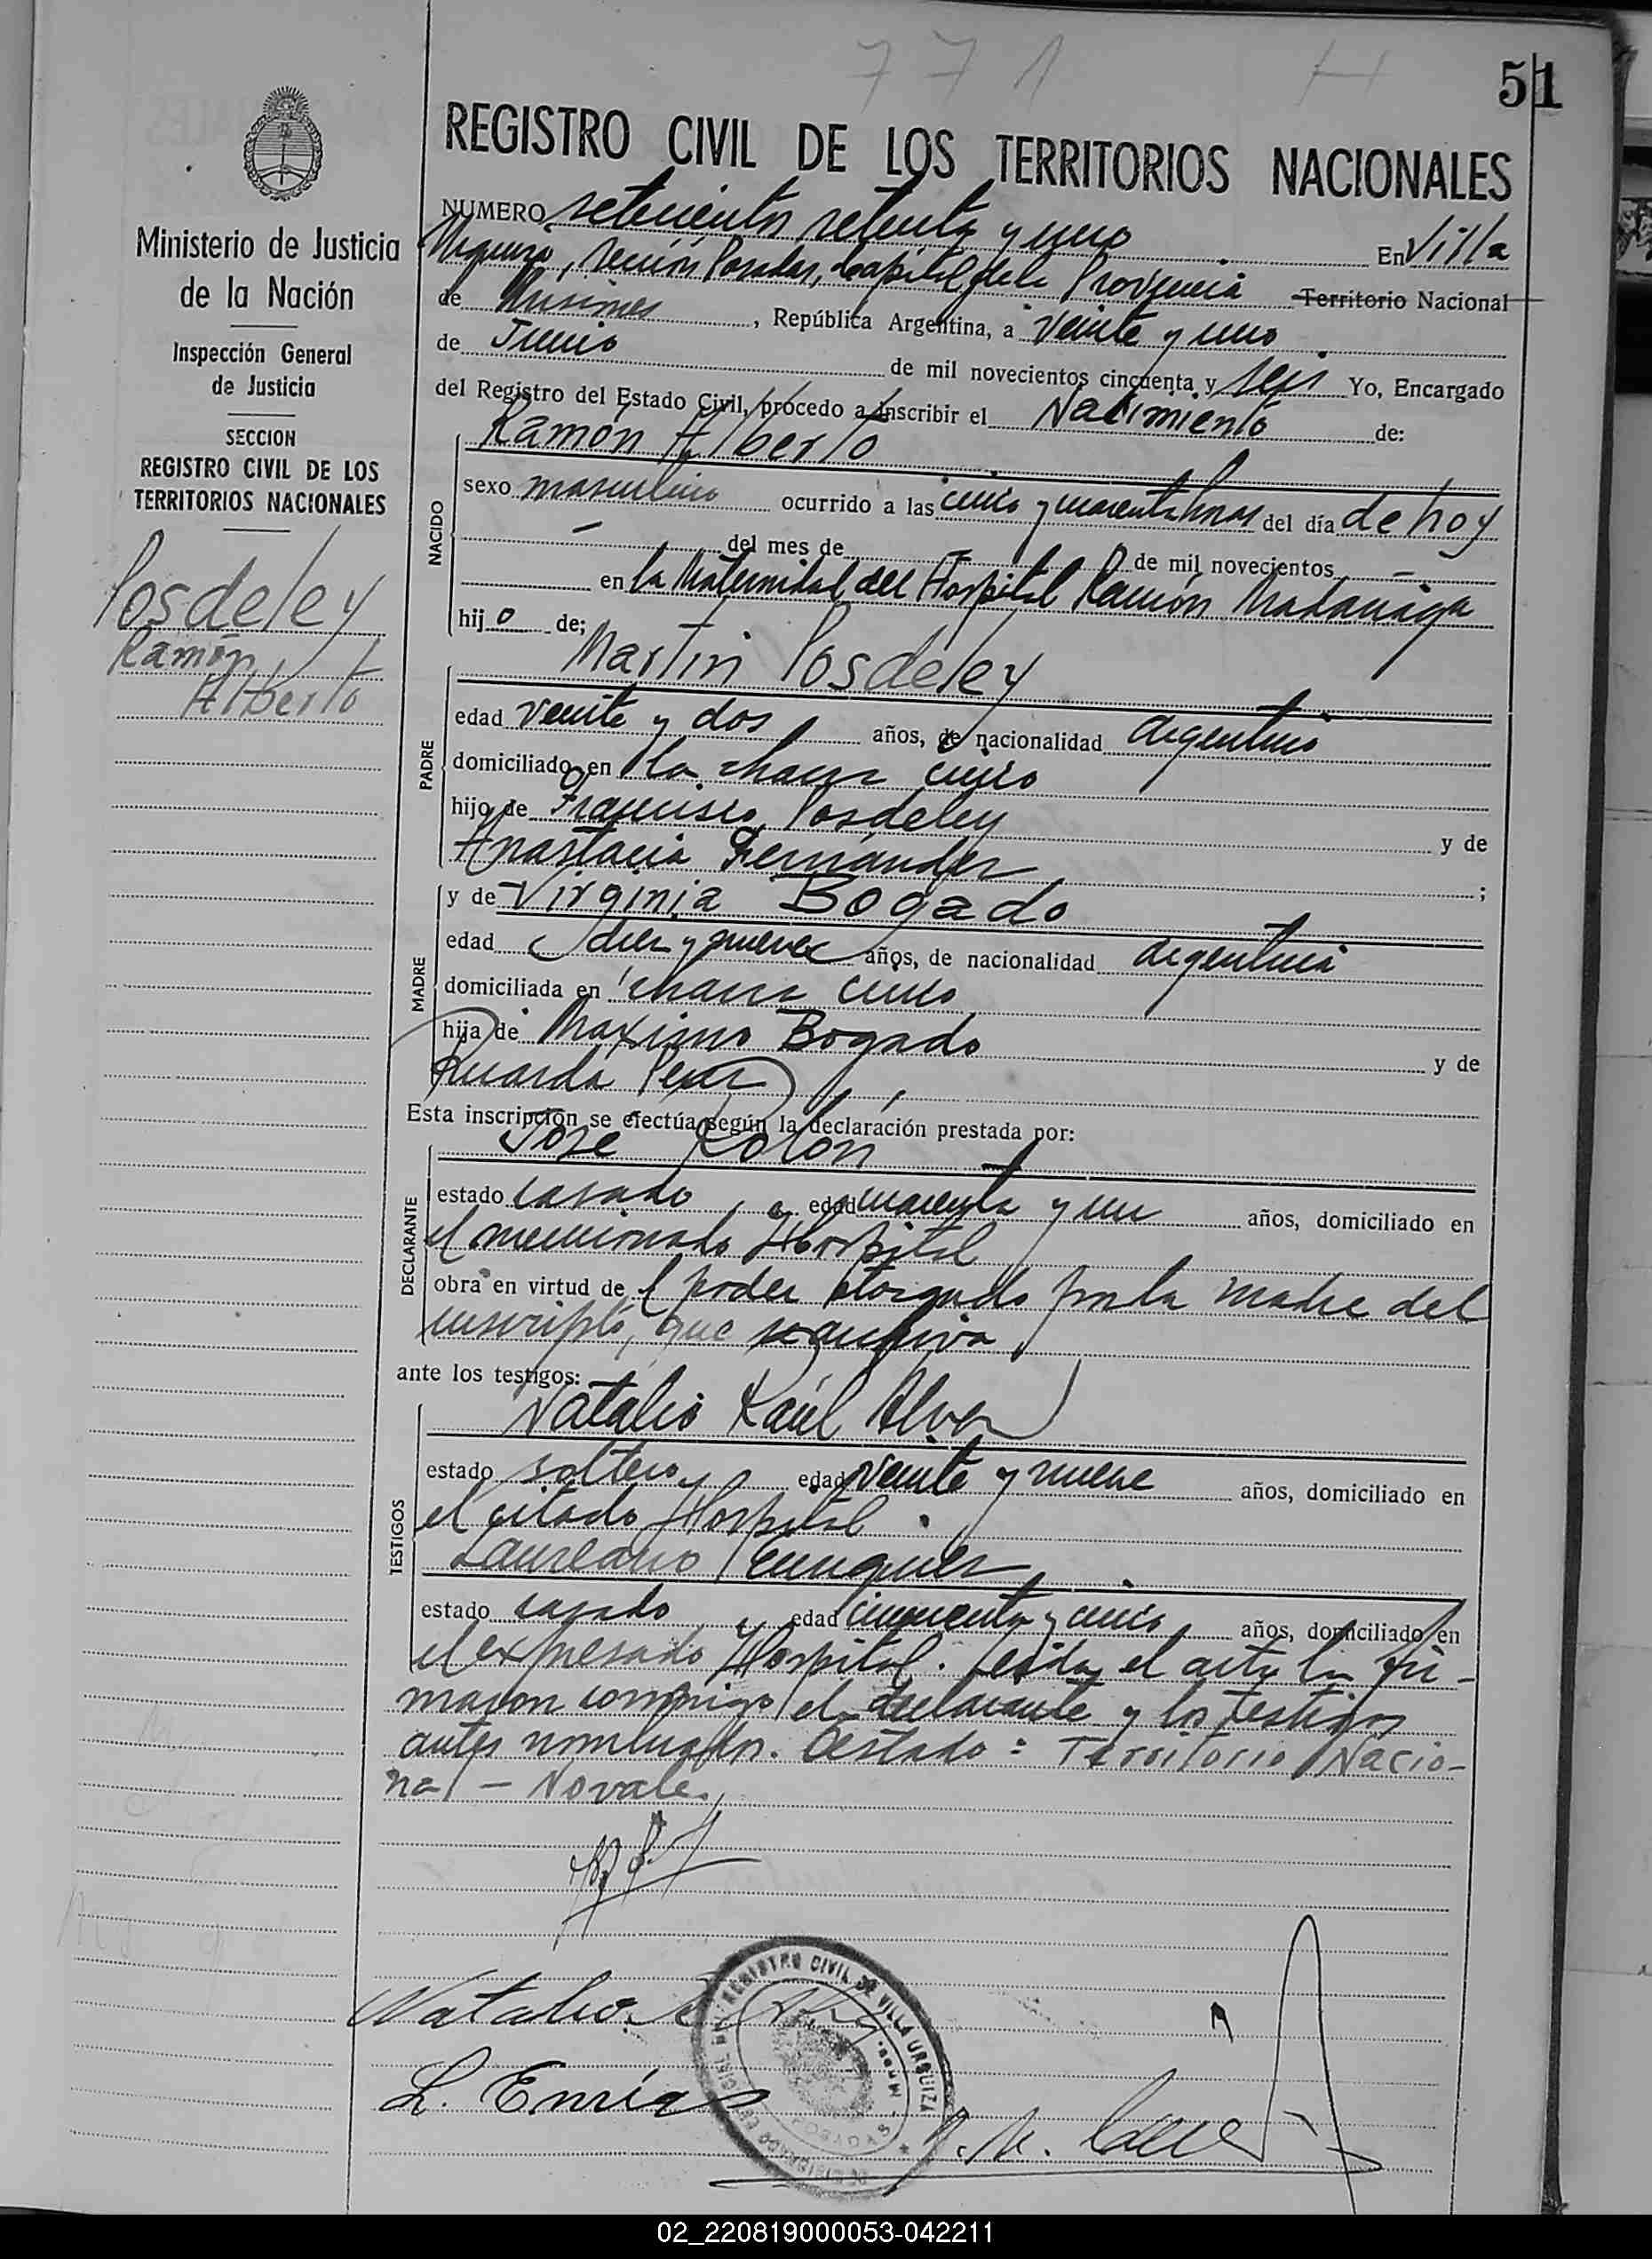 771
51
REGISTRO CIVIL DE LOS TERRITORIOS NACIONALES
Ministerio de Justicia
de la Nación
Inspección General
de Justicia
SECCION
REGISTRO CIVIL DE LOS
TERRITORIOS NACIONALES
Posdeley
Ramón
Alberto
NUMERO setecientos setenta y uno En Villa
Urquiza, sección Posadas, Capital de la Provincia Territorio Nacional
de Misiones, República Argentina, a veinte y uno
de Junio de mil novecientos cincuenta y seis Yo, Encargado
del Registro del Estado Civil, procedo a inscribir el Nacimiento de:
Ramón Alberto
NACIDO
sexo masculino ocurrido a las cinco y cuarenta horas del día de hoy
- del mes de - de mil novecientos -
en la Maternidad del Hospital Ramón Madariaga
hijo de;
Martin Posdeley
PADRE
edad veinte y dos años, de nacionalidad argentino
domiciliado en la chacra cinco
hijo de Francisco Posdeley y de
Anastacia Fernández ;
MADRE
y de Virginia Bogado
edad diez y nueve años, de nacionalidad argentina
domiciliada en chacra cinco
hija de Maximo Bogado y de
Esta inscripción se efectúa según la declaración prestada por:
José Rolón
DECLARANTE
estado casado, edad cuarenta y un años, domiciliado en
el mencionado Hospital
obra en virtud del poder otorgado por la madre del
inscripto, que se archiva
ante los testigos:
Natalio Raúl Alvez
TESTIGOS
estado soltero, edad veinte y nueve años, domiciliado en
el citado Hospital.
Laureano
estado casado, edad cincuenta y cinco años, domiciliado en
el expresado Hospital. Leída el acta la fir-
maron conmigo el declarante y los testigos
antes nombrados. Testado: Territorio Nacio-
nal - No vale.
Natalio R.
L.
REGISTRO CIVIL DE VILLA URQUIZA
02_220819000053-042211